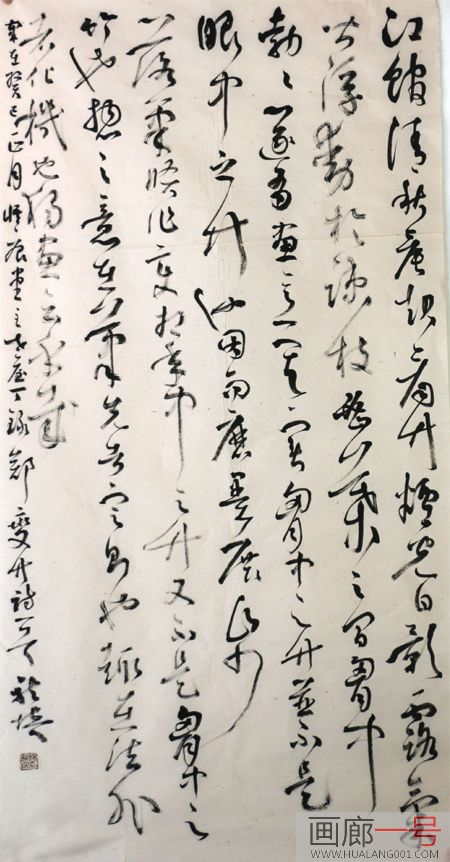 江館清秋晨起看竹煙光日影露氣
皆浮動於疏枝密葉之間胸中
勃勃遂有畫意其實胸中之竹並不是
眼中之竹也因而磨墨展紙
落筆倏作變相手中之竹又不是胸中之
竹也總之意在筆先者定則也趣在法外
者化機也獨畫云乎哉
歲在癸巳正月 堂之 錄鄭燮竹詩一首
画廊一号
WWW.HUALANG001.COM